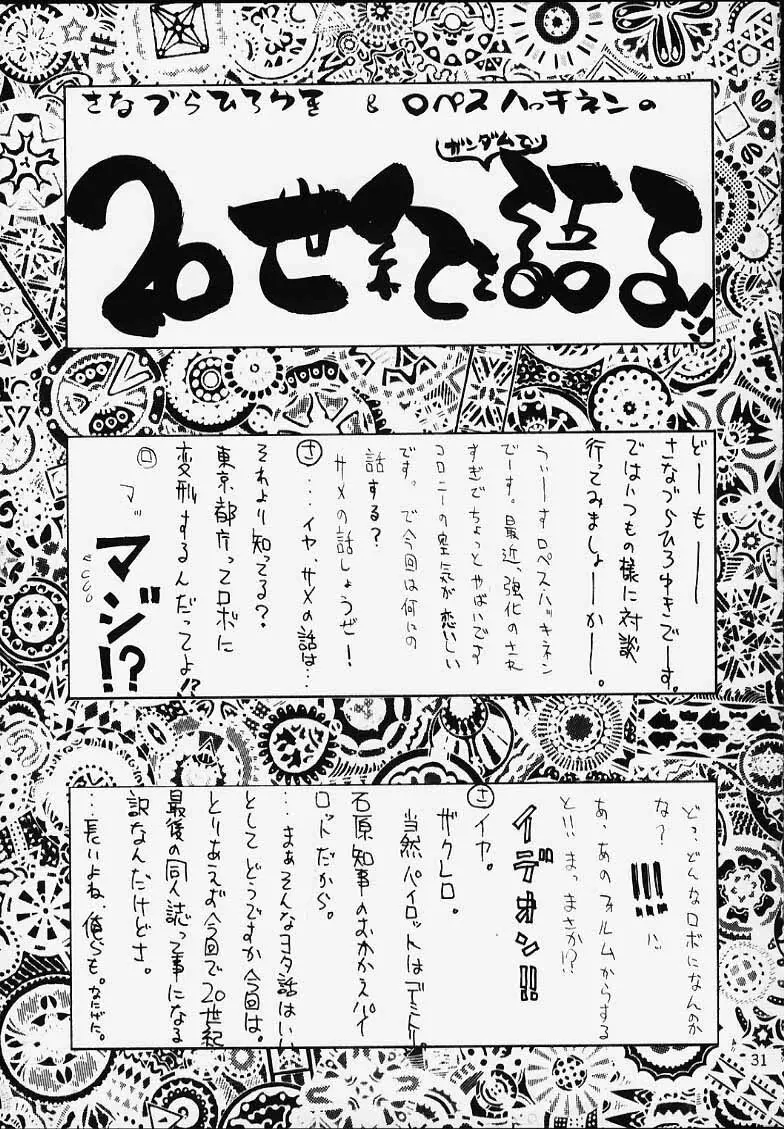 さなづらひろゆき & ロペスハッキネンの
ガンダムで
20世紀を語る!!
どーもーー
さなづらひろゆきでーす。
ではいつもの様に対談
行ってみましょーかー。
うぃーーすロペスハッキネン
でーす。最近、強化のされ
すぎでちょっとやばいです
コロニーの空気が恋しい
です。で今回は何にの
話する?
サメの話しょうぜー!
さ…イヤ、サメの話は…
それより知ってる?
東京都庁ってロボに
変形するんだってよ!?
ロ マッ
マジ!?
どっ、どんなロボになんのか
な?
!!!
ハ
あ、あのフォルムからする
と!! まっまさか!?
イデオン!!
さ イヤ。
ザクレロ。
当然パイロットはデミトリー。
石原知事のおかかえパイ
ロットだから。
…まぁそんなヨタ話はいい
としてどうですか今回は。
とりあえず今回で20世紀
最後の同人誌って事になる
訳なんだけどさ。
…長いよね、俺らも。
31